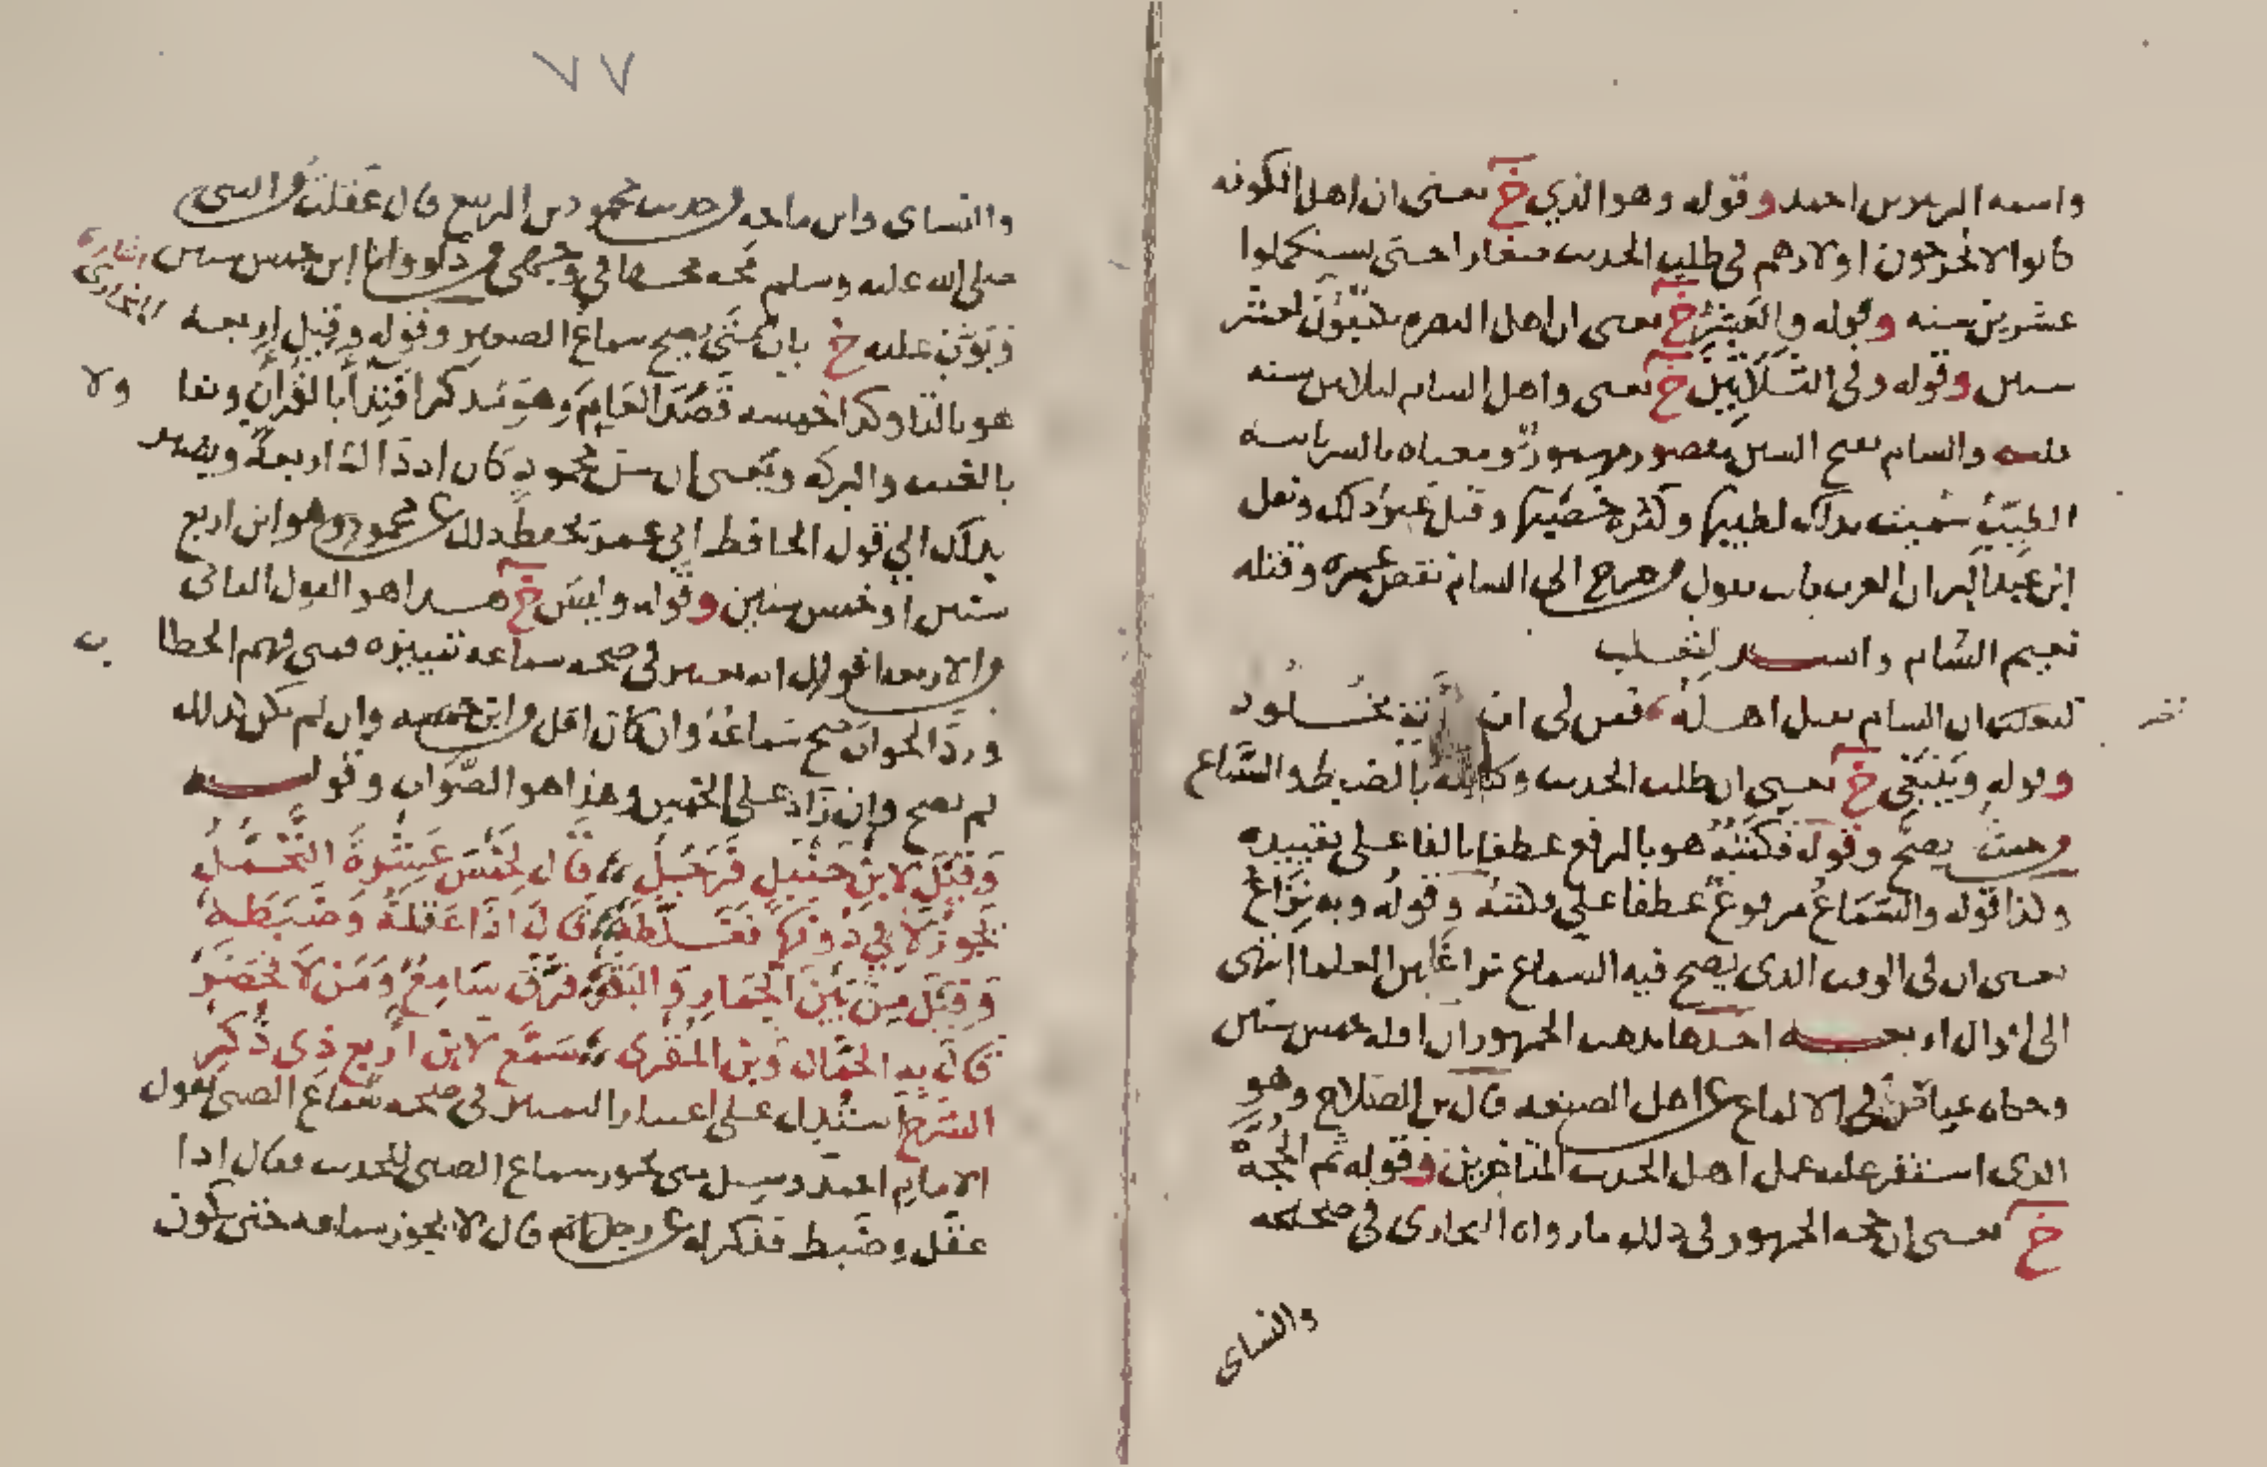 واسمه الزبير بن احمد وقوله وهو الذي خ يعني ان اهل الكوفه
كانوا لا يخرجون اولادهم في طلب الحديث صغارا حتى يستكملوا
عشرين سنه وقوله والعشر خ يعني ان اهل البصره يكتبون لعشر
سنين وقوله وفي الثلاثين خ يعني واهل الشام لثلاثين سنه
والشام بفتح الشين مقصور مهموز ومعناه بالسريانيه
الطيب سميت بذلك لطيبها وكثرة خصبها وقيل غير ذلك ونقل
ابن عبد البر ان العرب كانت تقول من خرج الى الشام نقص عمره وقتله
نعيم الشام وانشد لثعلب
ان الشام يقتل اهله فمن لي ان بخلود
وقوله وينبغي خ يعني ان طلب الحديث وكتابته بالضبط والسماع
من حيث يصح وقوله فكتبه هو بالرفع عطفا بالفا على تقييده
وكذا قوله والسماع مرفوع عطفا على كتبه وقوله وبه نزاع
يعني ان في الوقت الذي يصح فيه السماع نزاعا بين العلما انتهى
الى اقوال اربعه احدها مذهب الجمهور ان اقله خمس سنين
وحكاه عياض في الالماع عن اهل الصنعه قال بن الصلاح وهو
الذي استقر عليه عمل اهل الحديث المتاخرين وقوله ثم الحجة
خ يعني ان حجه الجمهور في ذلك ما رواه البخاري في صحيحه
والنساي
٧٧
والنساي وابن ماجه من حديث محمود بن الربيع قال عقلت من النبي
صلى الله عليه وسلم مجه مجها في وجهي من دلو وانا ابن خمس سنين
وبوب عليه خ باب متى يصح سماع الصغير وقوله وقيل اربعه
هو بالتا وكذا خمسه
بالغيب والبركه ويعني ان سن محمود كان اذ ذاك اربعة ويشير
بذلك الى قول الحافظ ابي عمر يحفظ ذلك عن محمود وهو ابن اربع
سنين او خمس سنين وقوله وليس خ هذا هو القول الثاني
من الاربعه اقوال انه يعتبر في صحه سماعه تمييزه فمتى فهم الخطاب
ورد الجواب صح سماعه وان كان اقل من ابن خمسه وان لم يكن كذلك
لم يصح وان زاد على الخمس وهذا هو الصواب وقوله
وقيل لابن حنبل فرجل قال لخمس عشرة التحمل
يجوز لا في دونها فغلطه قال اذا عقله وضبطه
وقيل من بين الحمار والبقره فرق سامع ومن لا يحضر
قال به الحمال وبن المقري سمع لابن اربع ذي ذكر
الشرح استدل على اعتبار التمييز في صحه سماع الصبي بقول
الامام احمد وسيل متى يجوز سماع الصبي للحديث فقال اذا
عقل وضبط فذكر له عن رجل انه قال لا يجوز سماعه حتى يكون